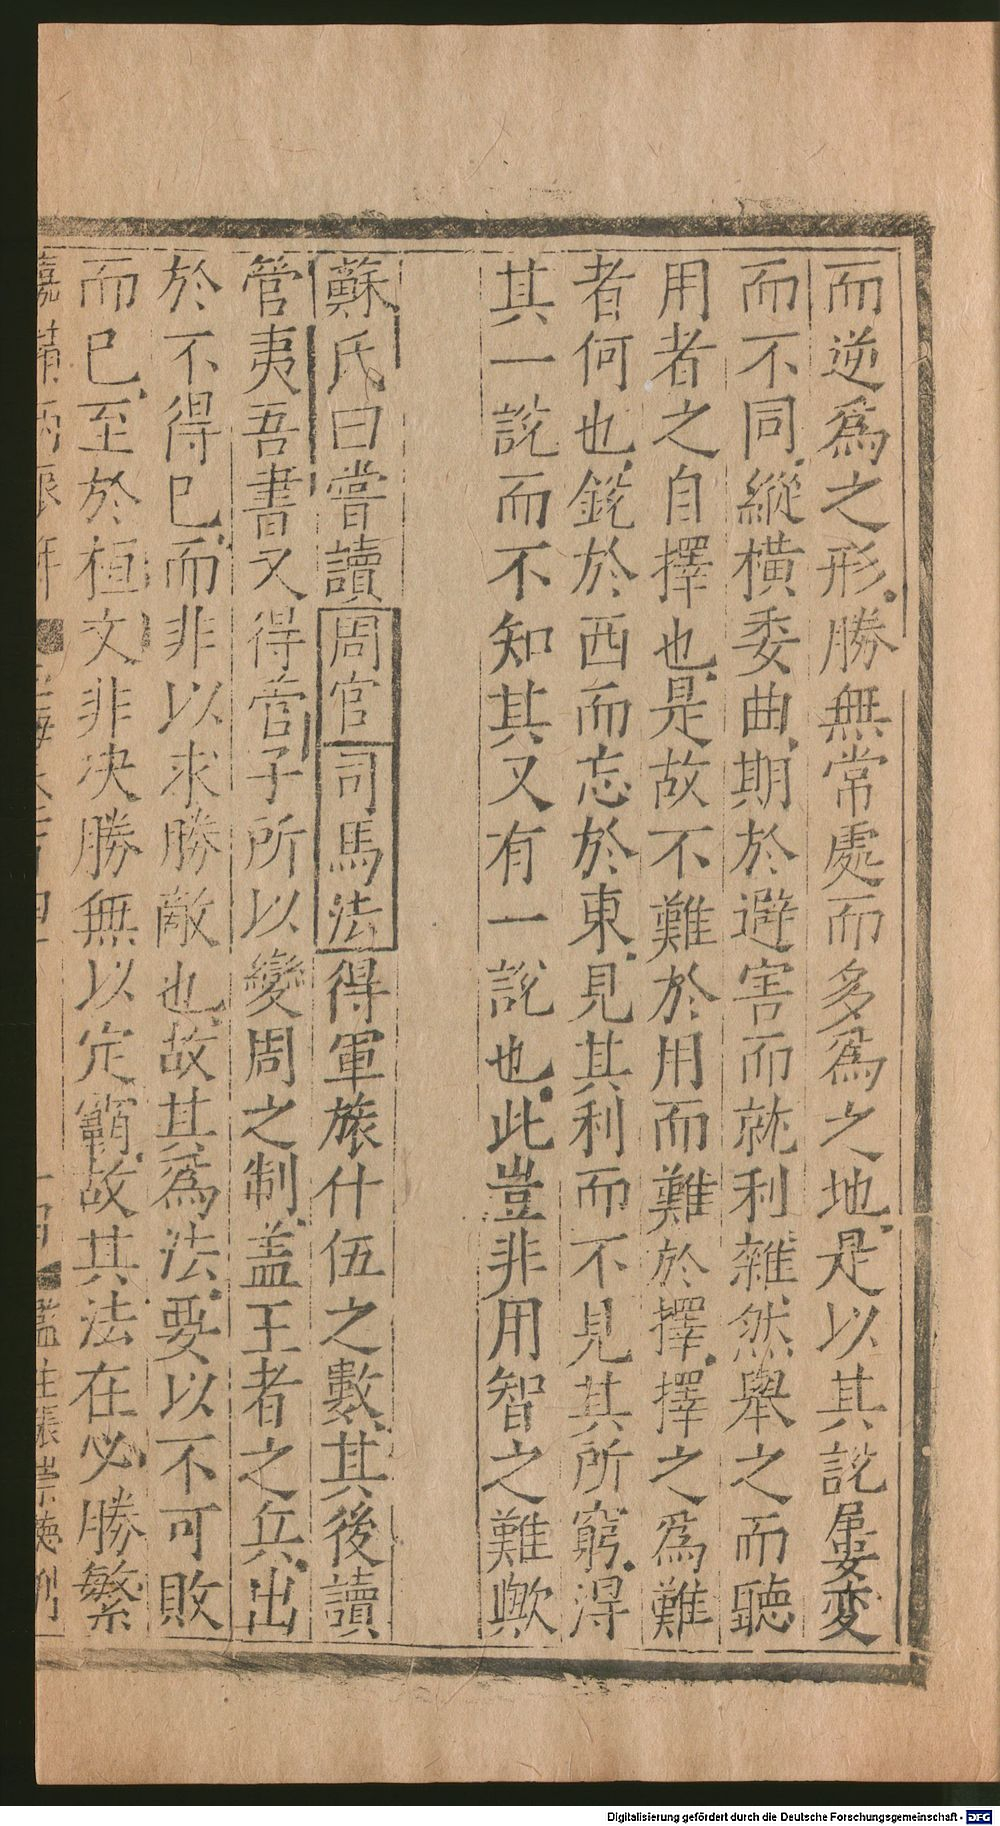 而逆爲之形勝無常處而多爲之地是以其說屢変
而不同縱橫委曲期於避害而就利雜然舉之而聽
用者之自擇也是故不難於用而難於擇擇之爲難
者何也銳於西而忘於東見其利而不見其所窮得
其一說而不知其又有一說也此豈非用智之難歟
蘇氏曰嘗讀周官司馬法得軍旅什伍之數其後讀
管夷吾書又得管子所以變周之制蓋王者之兵出
於不得已而非以求勝敵也故其爲法要以不可敗
而已至於桓文非决勝無以定霸故其法在必勝繁
嘉靖丙辰年
監生張崇德刊
Digitalisierung gefördert durch die Deutsche Forschungsgemeinschaft - DFG